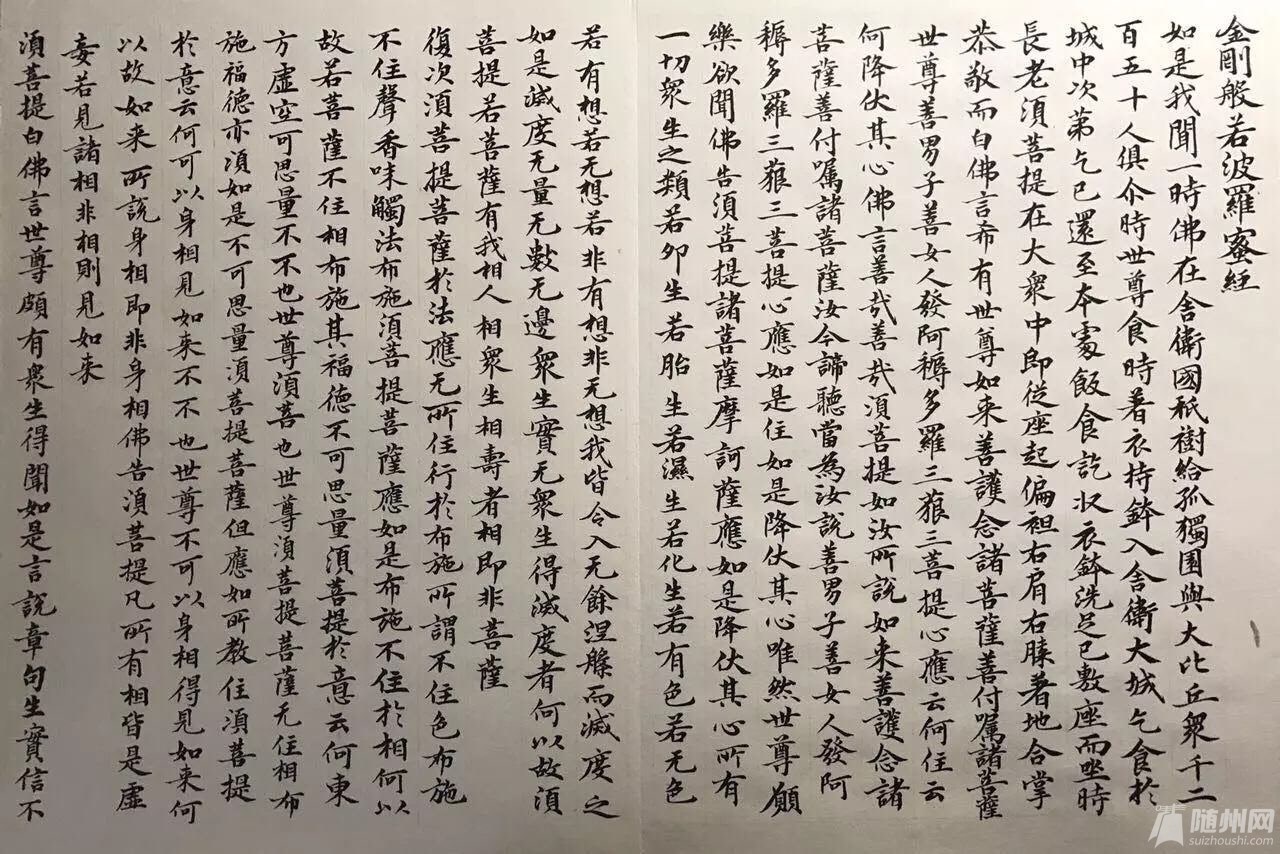 金剛般若波羅蜜經
如是我聞一時佛在舍衛國祇樹給孤獨園與大比丘衆千二
百五十人俱尒時世尊食時着衣持鉢入舍衛大城乞食於
城中次第乞已還至本處飯食訖收衣鉢洗足已敷座而坐時
長老須菩提在大衆中即從座起偏袒右肩右膝著地合掌
恭敬而白佛言希有世尊如来善護念諸菩薩善付囑諸菩薩
世尊善男子善女人發阿耨多羅三藐三菩提心應云何住云
何降伏其心佛言善哉善哉須菩提如汝所說如来善護念諸
菩薩善付囑諸菩薩汝今諦聽當為汝說善男子善女人發阿
耨多羅三藐三菩提心應如是住如是降伏其心唯然世尊願
樂欲聞佛告須菩提諸菩薩摩訶薩應如是降伏其心所有
一切衆生之類若卵生若胎生若濕生若化生若有色若无色
若有想若无想若非有想非无想我皆令入无餘涅槃而滅度之
如是滅度无量无數无邊衆生實无衆生得滅度者何以故須
菩提若菩薩有我相人相衆生相壽者相即非菩薩
復次須菩提菩薩於法應无所住行於布施所謂不住色布施
不住聲香味觸法布施須菩提菩薩應如是布施不住於相何以
故若菩薩不住相布施其福德不可思量須菩提於意云何東
方虛空可思量不不也世尊須菩也世尊須菩提菩薩无住相布
施福德亦須如是不可思量須菩提菩薩但應如所教住須菩提
於意云何可以身相見如来不不也世尊不可以身相得見如来何
以故如来所說身相即非身相佛告須菩提凡所有相皆是虛
妄若見諸相非相則見如来
須菩提白佛言世尊頗有衆生得聞如是言說章句生實信不
随州网
suizhoushi.com